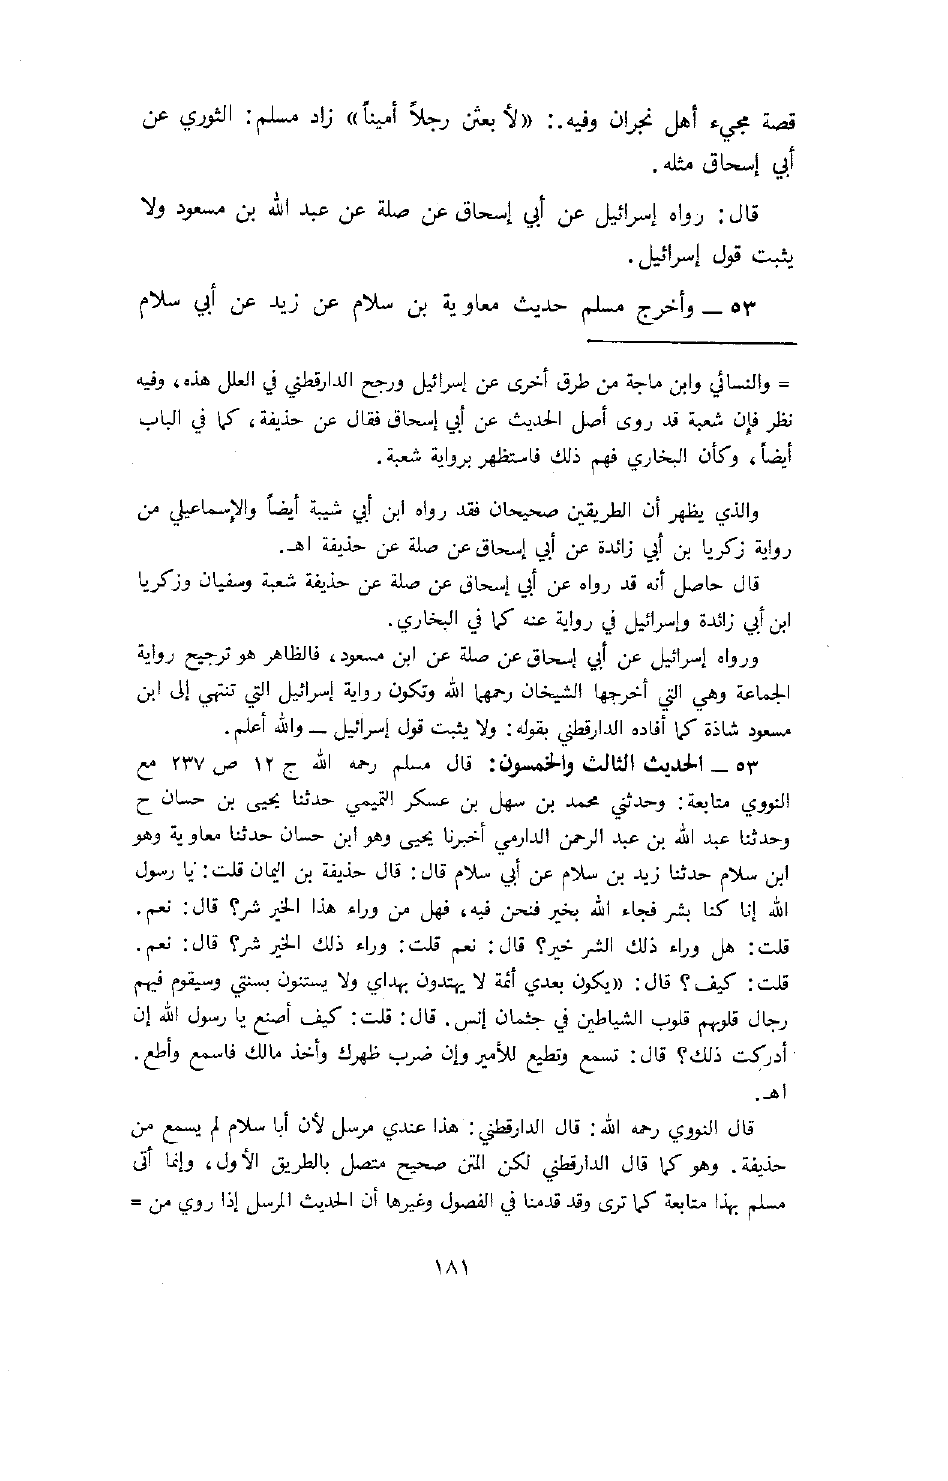 قصة مجيء أهل نجران وفيه.: «لأ بعثن رجلاً أميناً» زاد مسلم: الثوري عن
أبي إسحاق مثله.
قال: رواه إسرائيل عن أبي إسحاق عن صلة عن عبد الله بن مسعود ولا
يثبت قول إسرائيل.
٥٣ ـ وأخرج مسلم حديث معاوية بن سلام عن زيد عن أبي سلام
= والنسائي وابن ماجة من طرق أخرى عن إسرائيل ورجح الدارقطني في العلل هذه، وفيه
نظر فإن شعبة قد روى أصل الحديث عن أبي إسحاق فقال عن حذيفة، كما في الباب
أيضاً، وكأن البخاري فهم ذلك فاستظهر برواية شعبة.
والذي يظهر أن الطريقين صحيحان فقد رواه ابن أبي شيبة أيضاً والإسماعيلي من
رواية زكريا بن أبي زائدة عن أبي إسحاق عن صلة عن حذيفة اهـ.
قال حاصل أنه قد رواه عن أبي إسحاق عن صلة عن حذيفة شعبة وسفيان وزكريا
ابن أبي زائدة وإسرائيل في رواية عنه كما في البخاري.
ورواه إسرائيل عن أبي إسحاق عن صلة عن ابن مسعود، فالظاهر هو ترجيح رواية
الجماعة وهي التي أخرجها الشيخان رحمها الله وتكون رواية إسرائيل التي تنتهي إلى ابن
مسعود شاذة كما أفاده الدارقطني بقوله: ولا يثبت قول إسرائيل ـ والله أعلم.
٥٣ ـ الحديث الثالث والخمسون: قال مسلم رحمه الله ج ١٢ ص ٢٣٧ مع
النووي متابعة: وحدثني محمد بن سهل بن عسكر التميمي حدثنا يحيى بن حسان ح
وحدثنا عبد الله بن عبد الرحمن الدارمي أخبرنا يحيى وهو ابن حسان حدثنا معاوية وهو
ابن سلام حدثنا زيد بن سلام عن أبي سلام قال: قال حذيفة بن اليمان قلت: يا رسول
الله إنا كنا بشر فجاء الله بخير فنحن فيه، فهل من وراء هذا الخير شر؟ قال: نعم.
قلت: هل وراء ذلك الشر خير؟ قال: نعم قلت: وراء ذلك الخير شر؟ قال: نعم.
قلت: كيف؟ قال: «يكون بعدي أئمة لا يهتدون بهداي ولا يستنون بسنتي وسيقوم فيهم
رجال قلوبهم قلوب الشياطين في جثمان إنس. قال: قلت: كيف أصنع يا رسول الله إن
أدركت ذلك؟ قال: تسمع وتطيع للأمير وإن ضرب ظهرك وأخذ مالك فاسمع وأطع.
اهـ.
قال النووي رحمه الله: قال الدارقطني: هذا عندي مرسل لأن أبا سلام لم يسمع من
حذيفة. وهو كما قال الدارقطني لكن المتن صحيح متصل بالطريق الأول، وإنما أتى
مسلم بهذا متابعة كما ترى وقد قدمنا في الفصول وغيرها أن الحديث المرسل إذا روي من =
١٨١